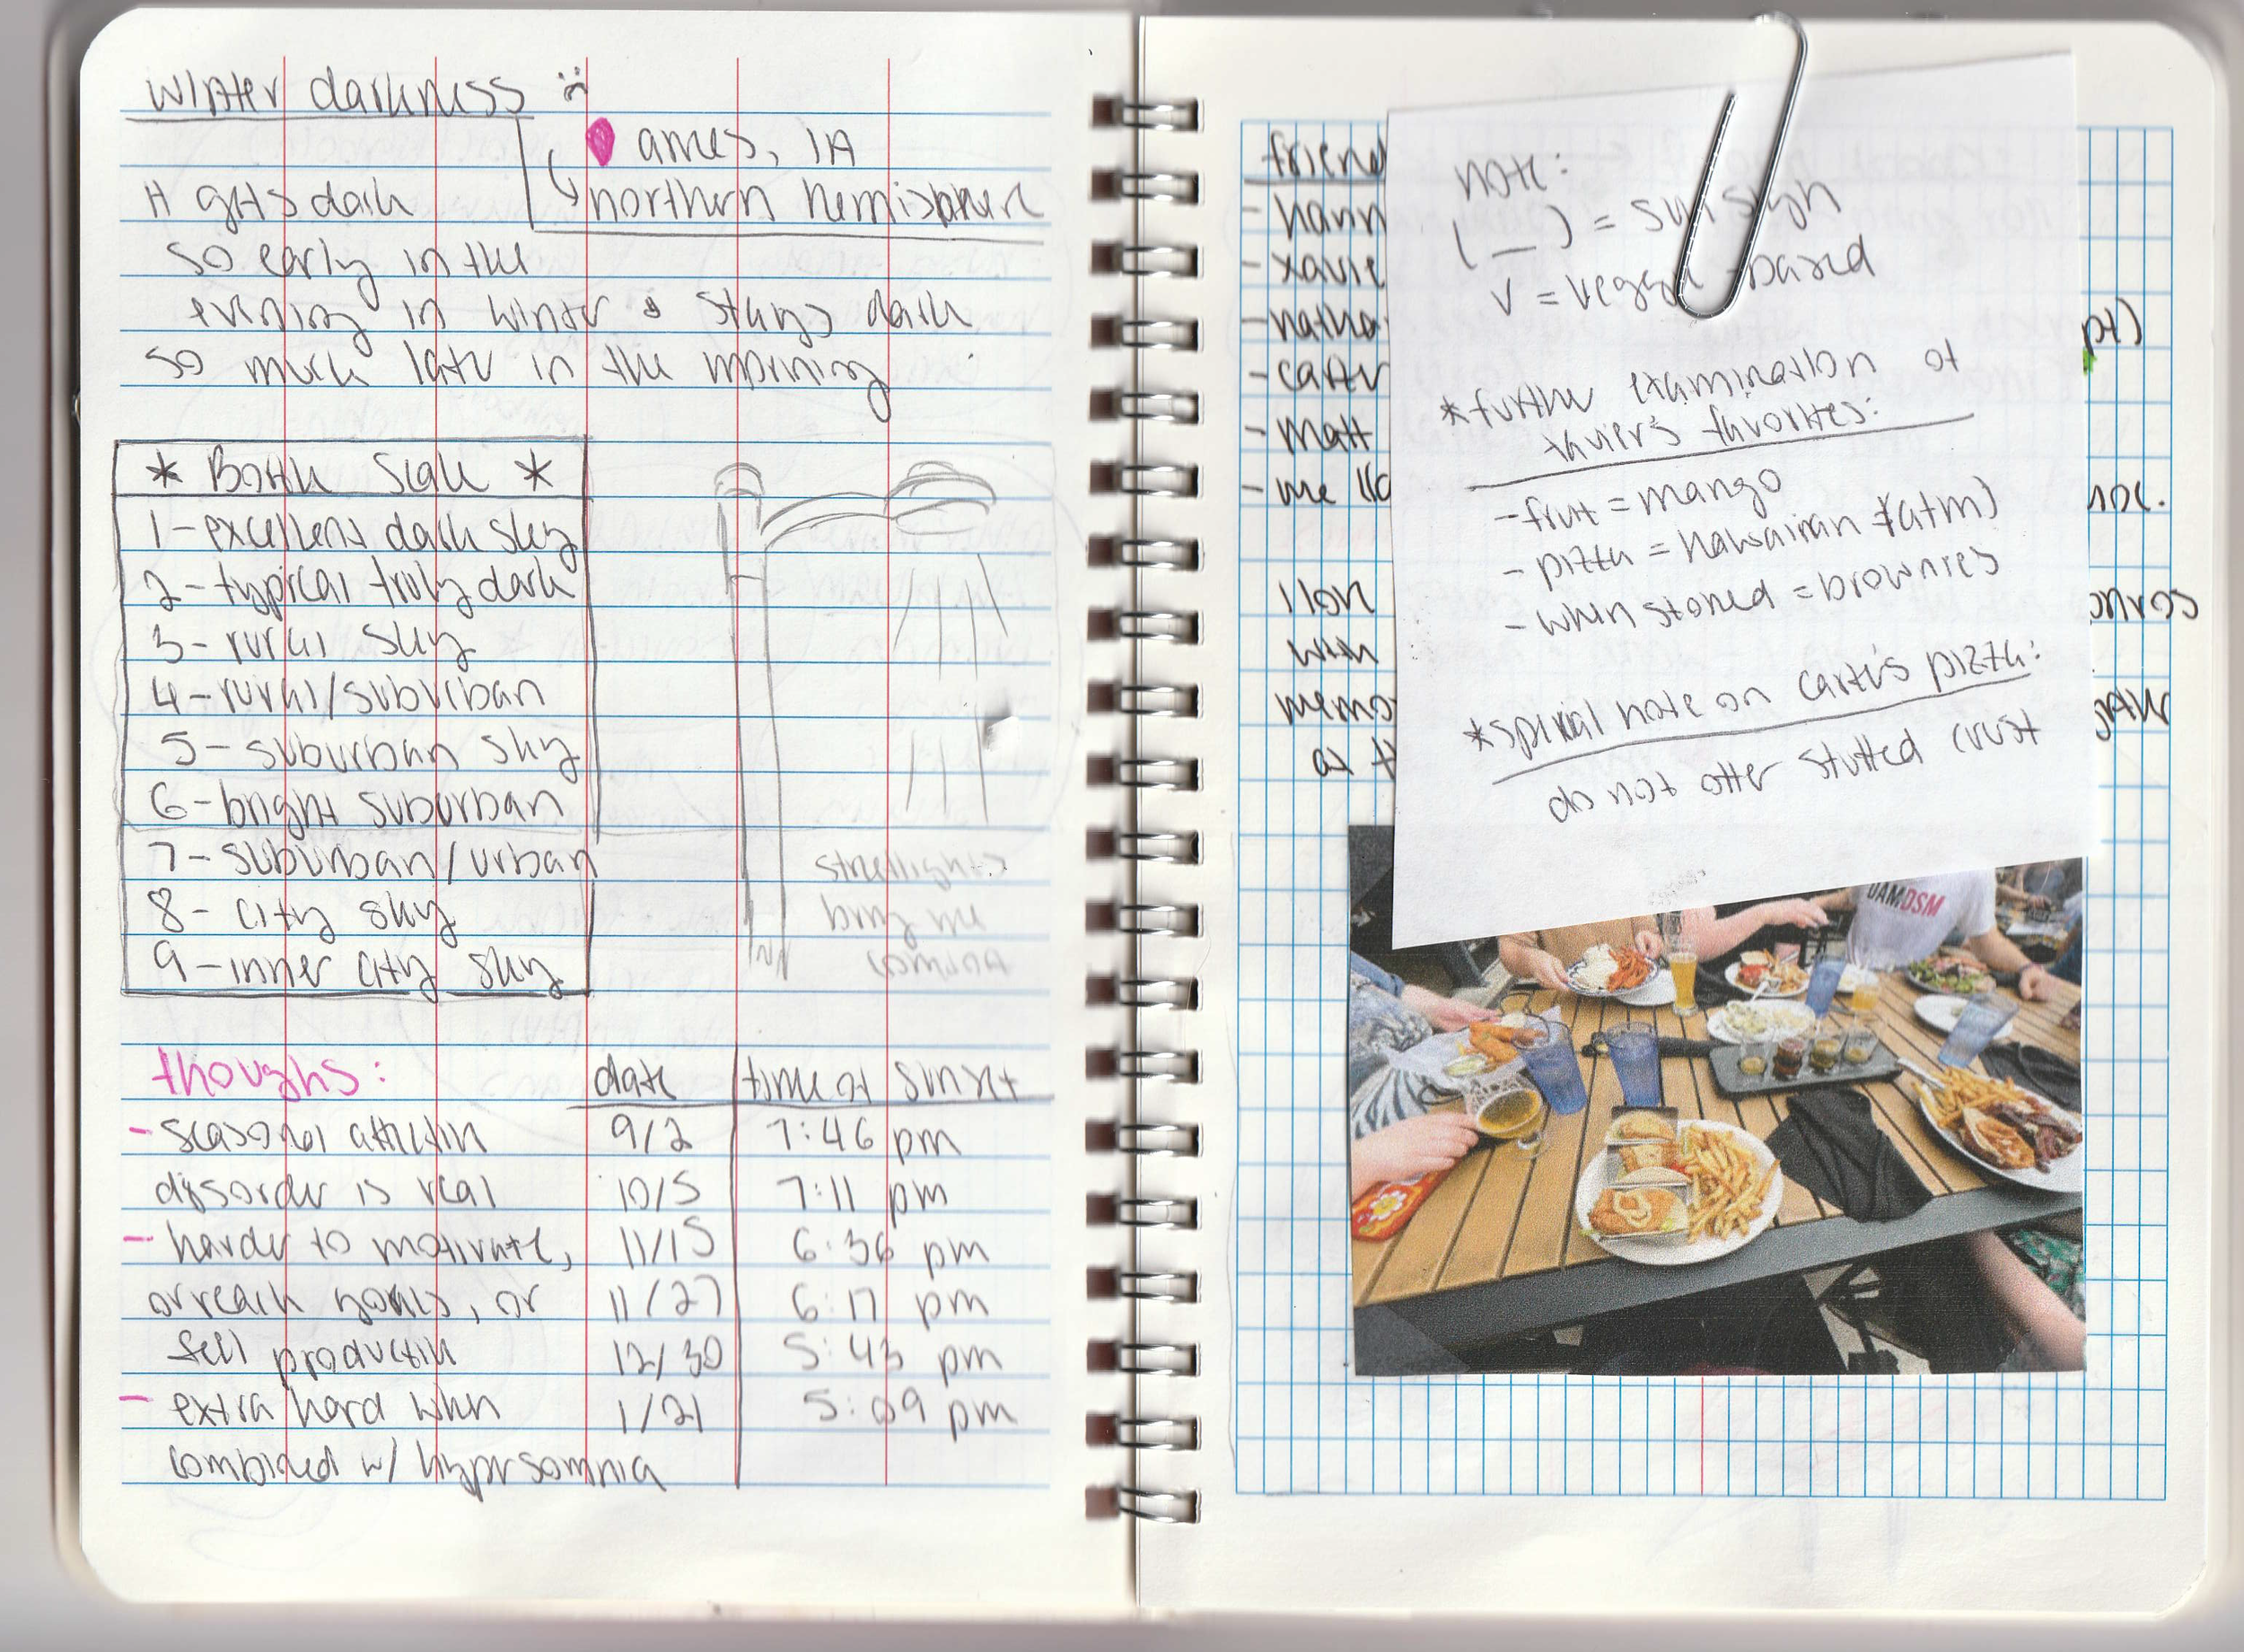 winter darkness :(
ames, IA
northern hemisphere
it gets dark
so early in the
evening in winter & stays dark
so much later in the morning
* Bortle Scale *
1 - excellent dark sky
2 - typical truly dark
3 - rural sky
4 - rural/suburban
5 - suburban sky
6 - bright suburban
7 - suburban/urban
8 - city sky
9 - inner city sky
streetlights
bring me
comfort
thoughs:
- seasonal affective
disorder is real
- harder to motivate,
or reach goals, or
feel productive
- extra hard when
combined w/ hypersomnia
date time of sunset
9/2 7:46 pm
10/5 7:11 pm
11/15 6:36 pm
11/27 6:17 pm
12/30 5:43 pm
1/21 5:09 pm
friend
- hann
- xavie
- natha pt)
- carter
- matt
- me
I lon
with
memo
at th
note:
(_) = sun sign
v = veggie-based
*further examination of
xavier's favorites:
- fruit = mango
- pizza = hawaiian *(atm)
- when stoned = brownies
*special note on carter's pizza:
do not offer stuffed crust
DAMDSM